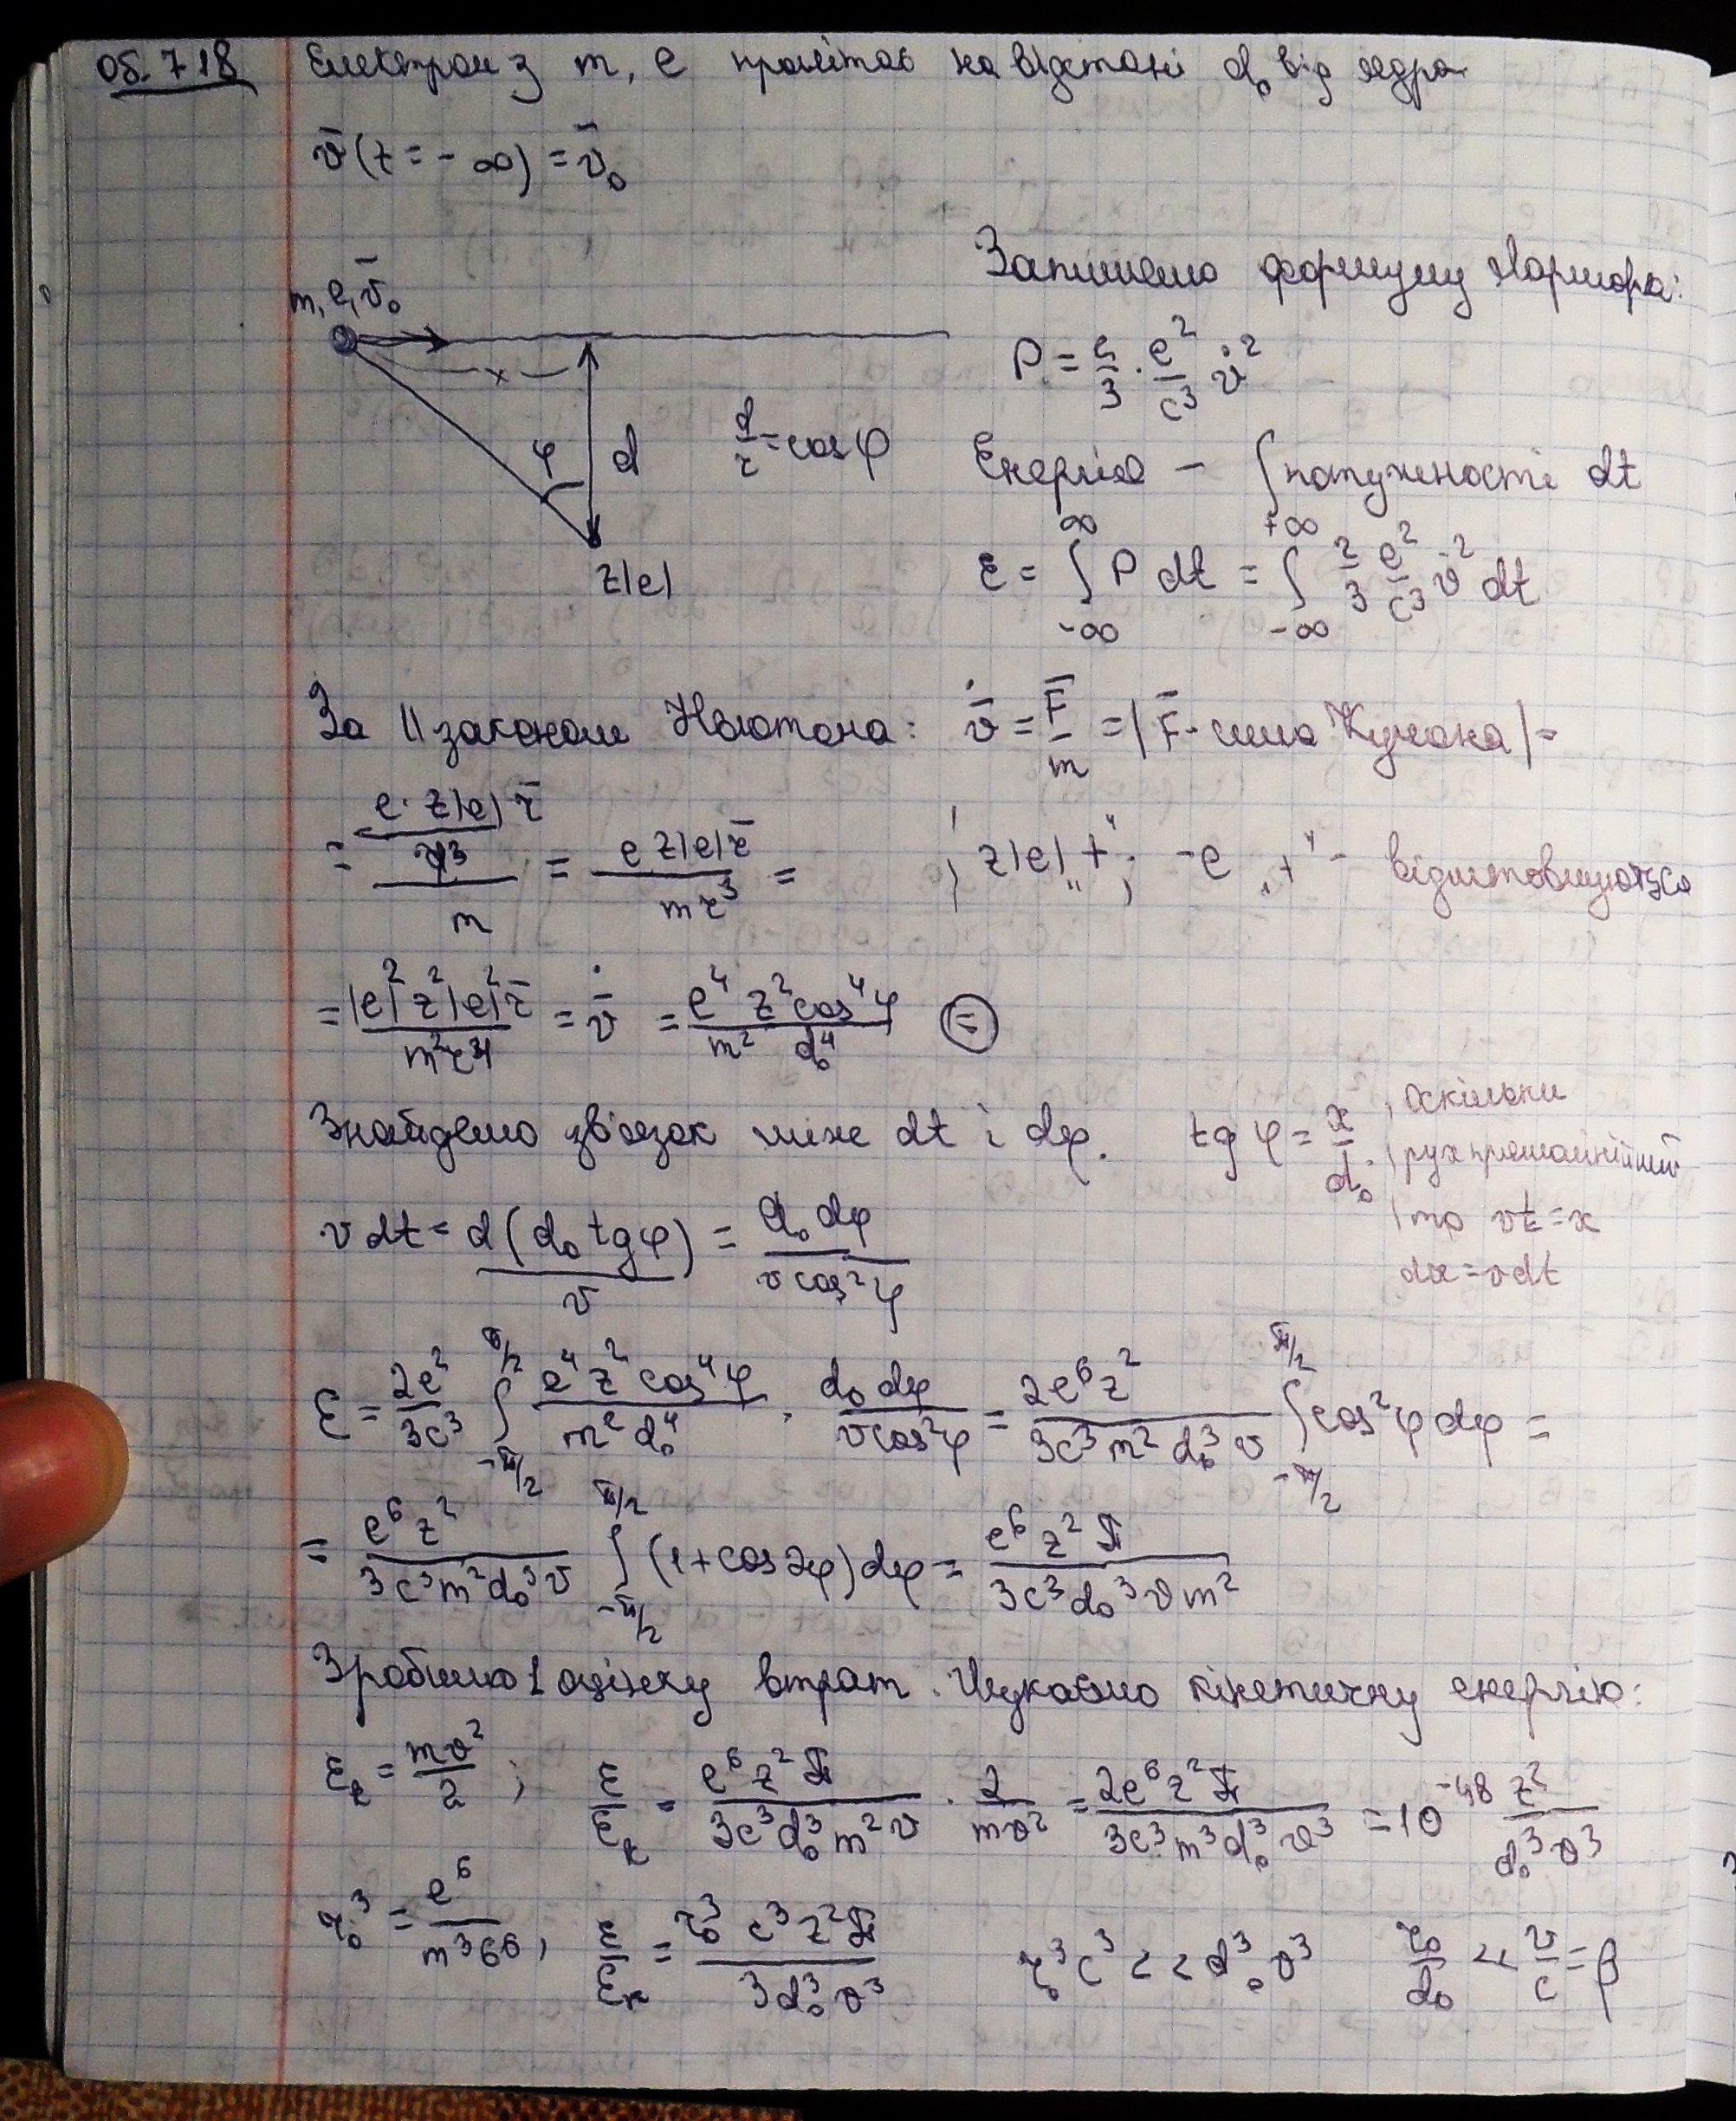 Об. 7 18 Електрон з m, e пролітає на відстані d₀ від ядра.
v̄(t = -∞) = v̄₀
Запишемо формулу Лармора:
m, e, v̄₀
x
φ
d
d/r = cos φ
z|e|
P = 2/3 · e²/c³ v̇²
Енергія - ∫потужності dt
ε = ∫_{-∞}^{∞} P dt = ∫_{-∞}^{+∞} 2/3 e²/c³ v̇² dt
За II законом Ньютона: v̄̇ = F̄/m = |F̄ - сила Кулона| =
= (e·z|e| r̄ / r³)/m = e z|e| r̄ / m r³ = | z|e| „+"; -e „+" - відштовхуються
= |e|² z² |e|² r̄ / m² r⁴ = v̄̇ = e⁴ z² cos⁴φ / m² d₀⁴ (=)
Знайдемо зв'язок між dt і dφ. tg φ = x/d₀ | оскільки
| рух прямолінійний
| то vt = x
dx = vdt
v dt = d(d₀ tg φ)/v = d₀ dφ / v cos²φ
ε = 2e²/3c³ ∫_{-π/2}^{π/2} e⁴ z² cos⁴φ / m² d₀⁴ · d₀ dφ / v cos²φ = 2e⁶ z² / 3c³ m² d₀³ v ∫_{-π/2}^{π/2} cos²φ dφ =
= e⁶ z² / 3c³ m² d₀³ v ∫_{-π/2}^{π/2} (1 + cos 2φ) dφ = e⁶ z² π / 3c³ d₀³ v m²
Зробимо оцінку втрат. Шукаємо кінетичну енергію:
ε_k = mv²/2 ; ε/ε_k = e⁶ z² π / 3c³ d₀³ m² v · 2/mv² = 2e⁶ z² π / 3c³ m³ d₀³ v³ = 10⁻⁴⁸ z² / d₀³ v³
r₀³ = e⁶ / m³ c⁶ , ε/ε_k = r₀³ c³ z² π / 3d₀³ v³ r₀³ c³ << d₀³ v³ r₀/d₀ << v/c = β